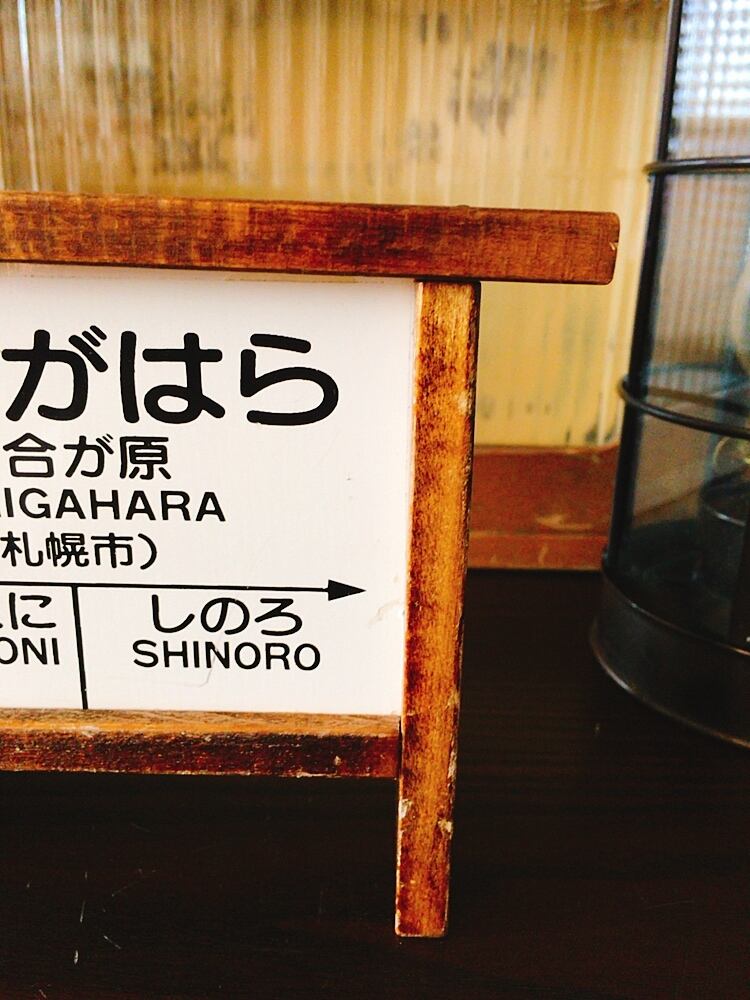 がはら
合が原
IGAHARA
札幌市）
に しのろ
ONI SHINORO